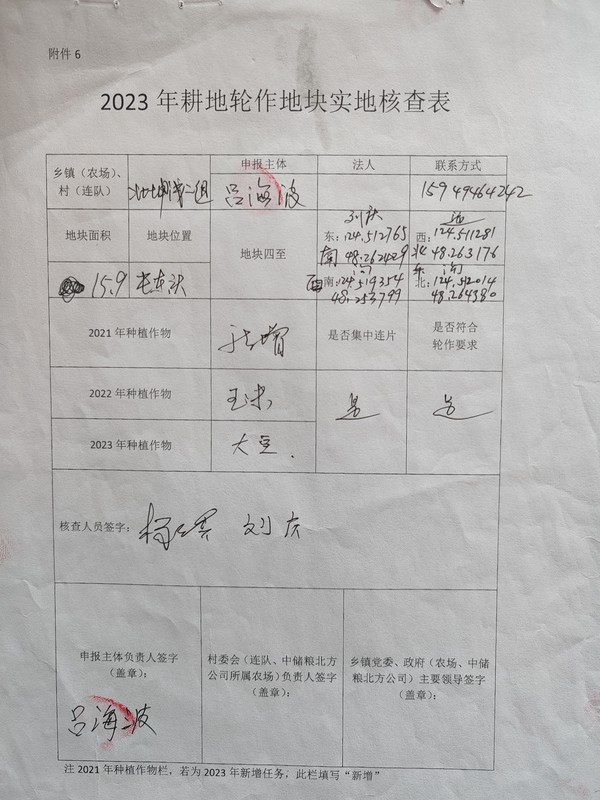 附件 6
2023 年耕地轮作地块实地核查表
乡镇（农场）、村（连队）
申报主体 法人 联系方式
吕海波 15949464242
地块面积 地块位置 地块四至
刘庆
东：124.512765
南 48.262429
西南：124.519354
48.253799
西：124.511281
北 48.263176
东
北：124.512014
48.264380
15.9
2021 年种植作物 新增 是否集中连片 是否符合轮作要求
2022 年种植作物 玉米 是 是
2023 年种植作物 大豆.
核查人员签字： 刘庆
申报主体负责人签字（盖章）：
吕海波
村委会（连队、中储粮北方公司所属农场）负责人签字（盖章）：
乡镇党委、政府（农场、中储粮北方公司）主要领导签字（盖章）：
注 2021 年种植作物栏，若为 2023 年新增任务，此栏填写“新增”